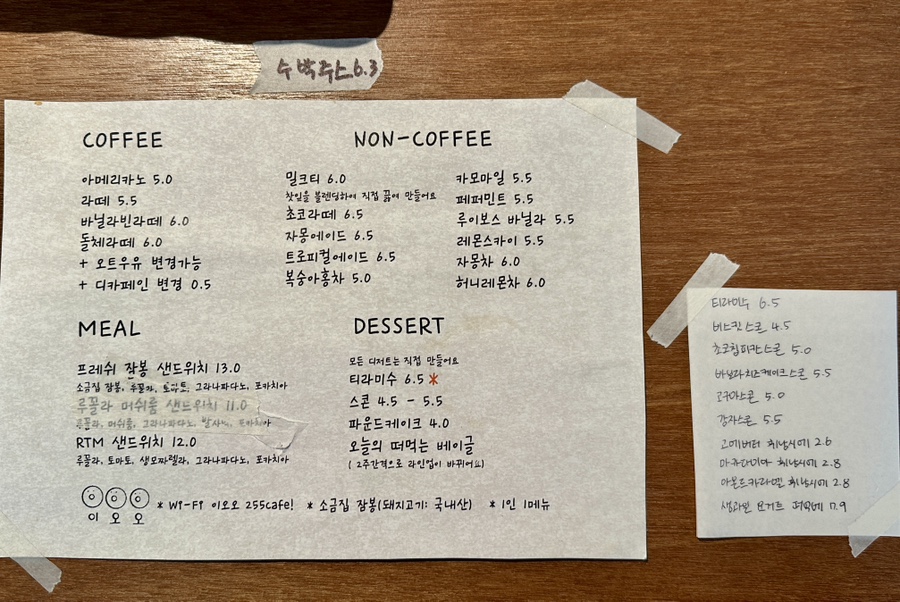 수박주스 6.3
COFFEE
아메리카노 5.0
라떼 5.5
바닐라빈라떼 6.0
돌체라떼 6.0
+ 오트우유 변경가능
+ 디카페인 변경 0.5
NON-COFFEE
밀크티 6.0
찻잎을 블렌딩하여 직접 끓여 만들어요
초코라떼 6.5
자몽에이드 6.5
트로피컬에이드 6.5
복숭아홍차 5.0
카모마일 5.5
페퍼민트 5.5
루이보스 바닐라 5.5
레몬스카이 5.5
자몽차 6.0
허니레몬차 6.0
MEAL
프레쉬 잠봉 샌드위치 13.0
소금집 잠봉, 루꼴라, 토마토, 그라나파다노, 포카치아
루꼴라 머쉬룸 샌드위치 11.0
루꼴라, 머쉬룸, 그라나파다노, 발사믹, 포카치아
RTM 샌드위치 12.0
루꼴라, 토마토, 생모짜렐라, 그라나파다노, 포카치아
DESSERT
모든 디저트는 직접 만들어요
티라미수 6.5 *
스콘 4.5 - 5.5
파운드케이크 4.0
오늘의 떠먹는 베이글
( 2주간격으로 라인업이 바뀌어요)
이 오 오
* Wi-Fi 이오오 255cafe! * 소금집 잠봉(돼지고기: 국내산) * 1인 1메뉴
티라미수 6.5
버터스콘 4.5
초코칩피칸스콘 5.0
바닐라치즈케이크스콘 5.5
고구마스콘 5.0
감자스콘 5.5
고메버터 휘낭시에 2.6
마카다미아 휘낭시에 2.8
아몬드카라멜 휘낭시에 2.8
생과일 요거트 파르페 7.9